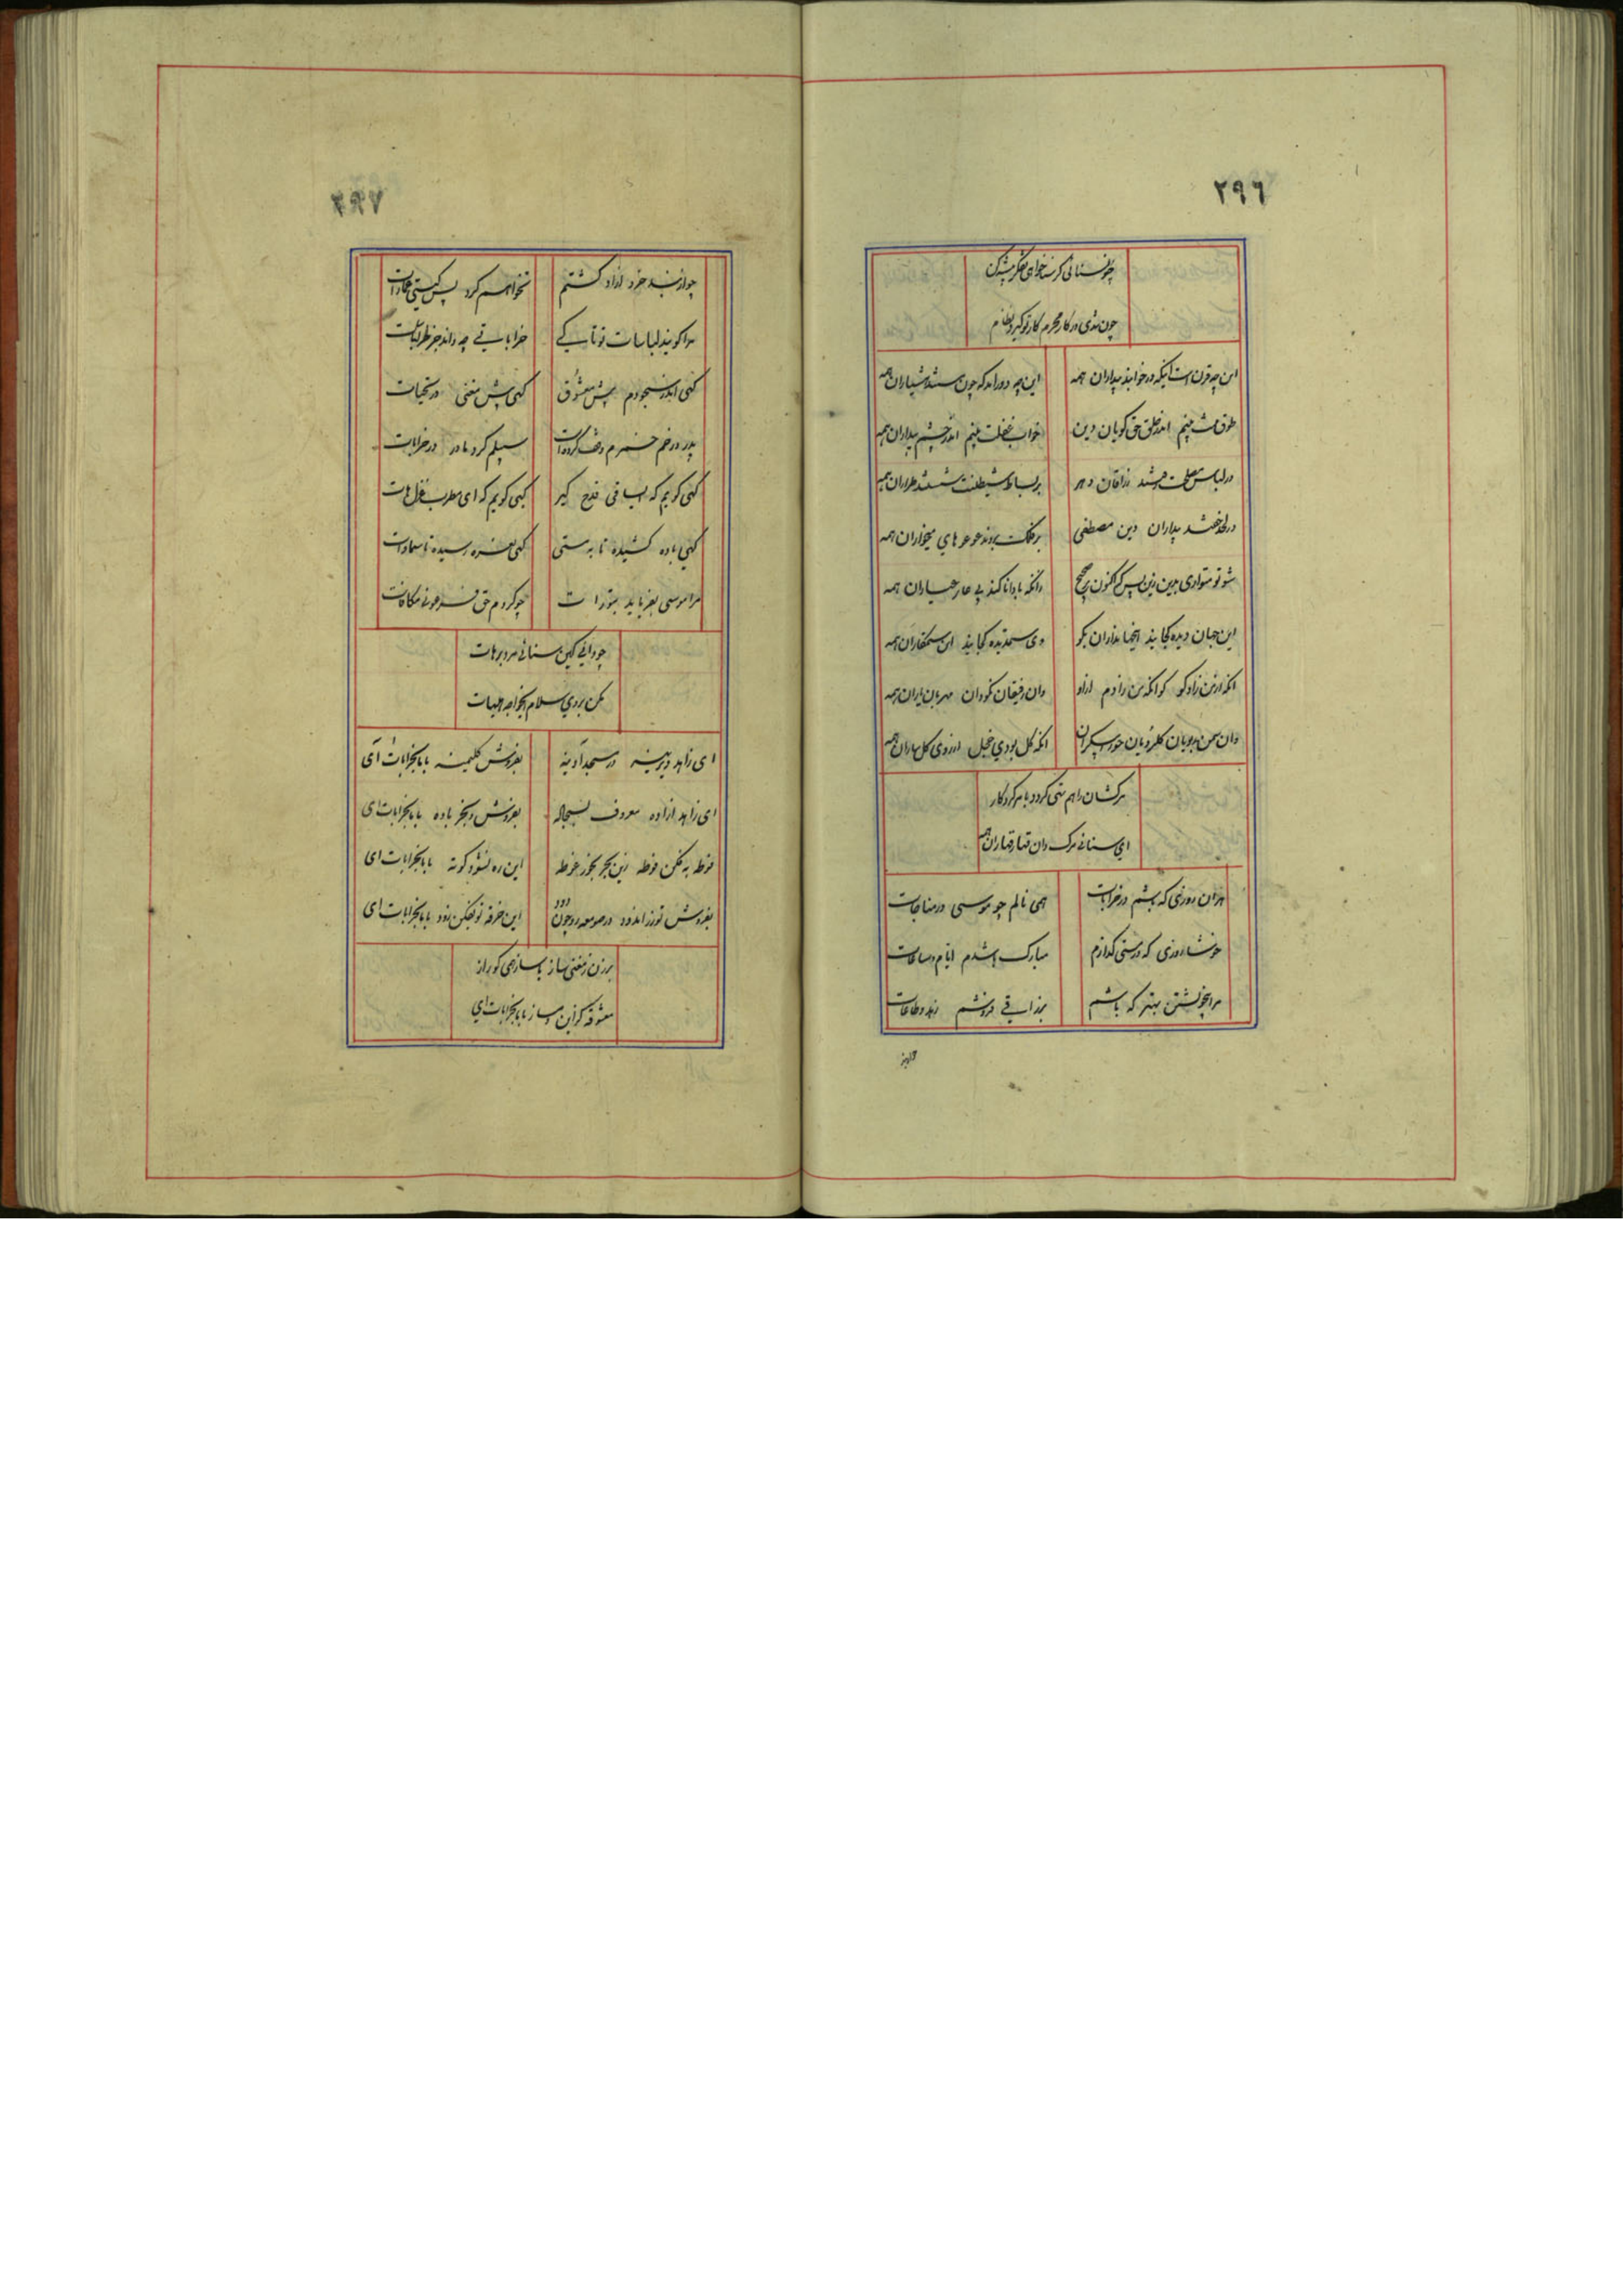 ٢٩٦
چون سنائی گر سناخواهی تفکر پیشه کن
چون شدی در کار محرم کار تو گیرد نظام
این چه قرن است اینکه در خوابند بیداران همه
این چه دور اند که چون مستند هشیاران همه
طوق منت بینم اندر حلق حق گویان دین
خواب غفلت بینم اندر چشم بیداران همه
در لباس مصلحت رفتند زراقان دهر
بر بساط شیطنت شستند طراران همه
در لحد خفتند بیداران دین مصطفی
بر فلک بردند عوعوهای میخواران همه
شو تو متواری درین زین پس که اکنون
وانکه با دانا کند بی عار عیاران همه
این جهان دیده کجایند انجهانداران بگو
وی ستمدیده کجایند این ستمکاران همه
انکه از من زاد کو کو انکه من زادم ازاو
وان رفیقان نکو وان مهربان یاران همه
وان سمن برویان گلرویان حورپیکران
انکه گل بودی خجل از روی گلساران همه
مرکشان راهم نمی کردد بامر کردگار
ای سنائی مرک دان قهار قهاران همه
هر ان روزی که باشم در خرابات
همی نالم چو موسی در مناجات
خوشا روزی که در مستی گذارم
مبارک باشدم ایام و ساعات
مرا بیخویشتن بهتر که باشم
بقرائی فروشم زهد و طاعات
چو از بند
٢٩٧
چو از بند خرد ازاد گشتم
نخواهم کرد پس گیتی عمارات
مرا گویند لباسات تو تا کی
خراباتی چه داند جز لباسات
گهی اندر سجودم پیش معشوق
گهی پیش مغنی در تحیات
پدر در خم خمرم وقف کرده است
سبیلم کرد مادر در خرابات
گهی گویم که ایساقی قدح گیر
گهی گویم که ای مطرب غزل هات
گهی باده کشیده تا بمستی
گهی نعره رسیده تا سماوات
مرا موسی بفرماید بتورات
چو کردم حق فرعونی مکافات
چو دانی کین سنائی مرد برهات
مکن بر وی سلام ایخواجه هیهات
ای زاهد دیرینه در مسجد آدینه
بفروش گلیمینه باما بخرابات آی
ای زاهد ازاده معروف بسجاده
بفروش و بخر باده باما بخرابات ای
فوطه به مکن فوطه زین بحر بخور غوطه
این ره نشود کوته باما بخرابات ای
بفروش تو زراندود در صومعه رو چون دود
این خرقه تو بفکن زود باما بخرابات ای
برزن ز مغنی ساز با ساز همی گو راز
معشوقه گزین دمساز باما بخرابات ای